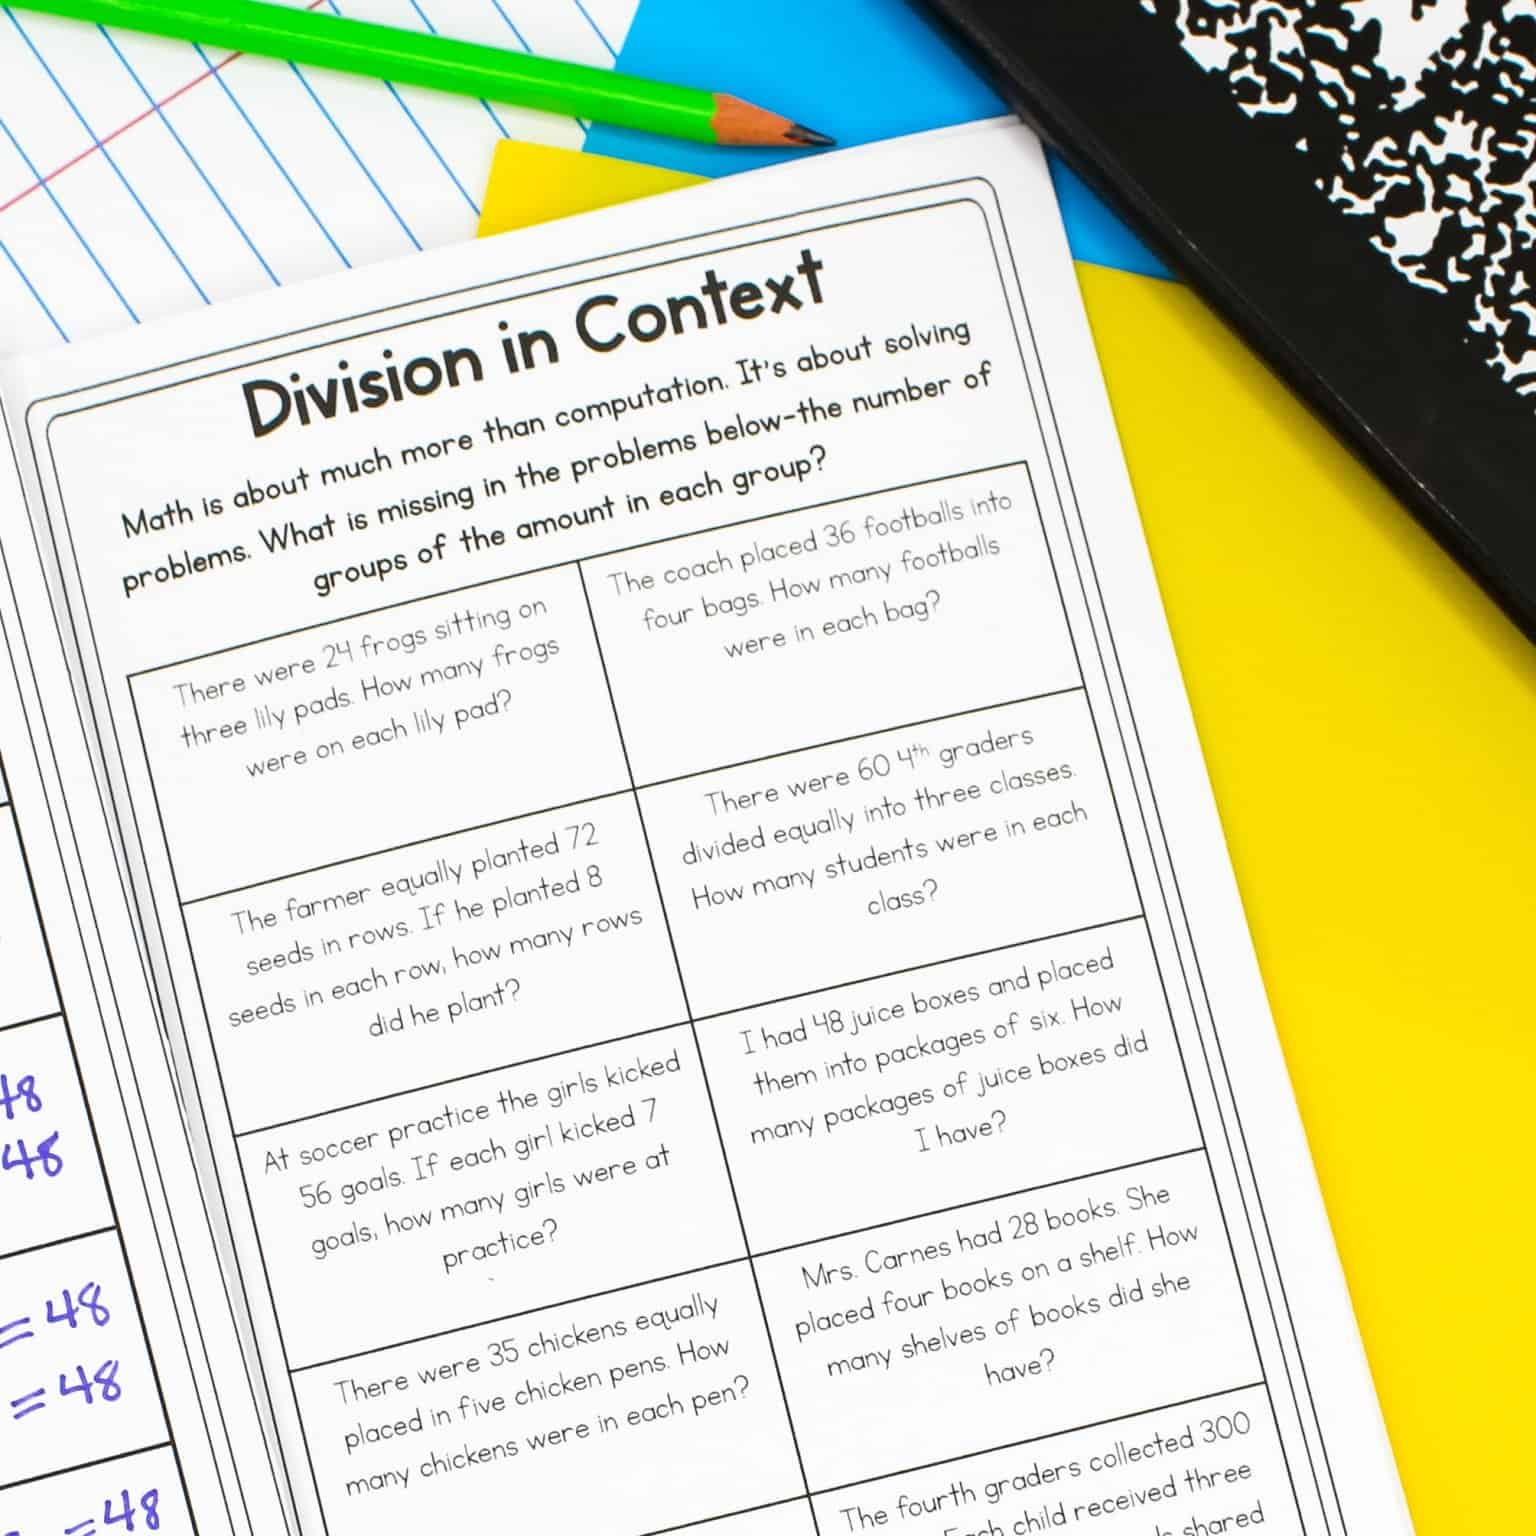 Division in Context
Math is about much more than computation. It's about solving
problems. What is missing in the problems below-the number of
groups of the amount in each group?
There were 24 frogs sitting on
three lily pads. How many frogs
were on each lily pad?
The coach placed 36 footballs into
four bags. How many footballs
were in each bag?
The farmer equally planted 72
seeds in rows. If he planted 8
seeds in each row, how many rows
did he plant?
There were 60 4th graders
divided equally into three classes.
How many students were in each
class?
At soccer practice the girls kicked
56 goals. If each girl kicked 7
goals, how many girls were at
practice?
I had 48 juice boxes and placed
them into packages of six. How
many packages of juice boxes did
I have?
There were 35 chickens equally
placed in five chicken pens. How
many chickens were in each pen?
Mrs. Carnes had 28 books. She
placed four books on a shelf. How
many shelves of books did she
have?
The fourth graders collected 300
child received three
shared
48
48
= 48
= 48
= 48